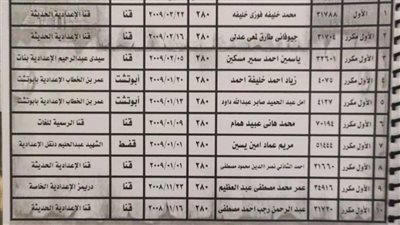 ١ الأول ٣١٧٨٨ محمد خليفه فوزى خليفه ٢٨٠ ٢٠٠٩/٠٢/٢٢ قنا قنا الإعدادية الحديثة
٢ الأول مكرر ٣١٧٠٤ جيوفانى طارق لمعى عدلى ٢٨٠ ٢٠٠٩/٠٢/١٦ قنا قنا الإعدادية الحديثة
٣ الأول مكرر ٣٣٦٠١ ياسمين احمد سمير مسكين ٢٨٠ ٢٠٠٩/٠٢/٠٥ قنا سيدى عبدالرحيم الإعدادية بنات
٤ الأول مكرر ٤٠٧٥ زياد احمد خليفة احمد ٢٨٠ ٢٠٠٩/٠١/٢٠ أبوتشت عمر بن الخطاب الإعدادية بابوتشت
٥ الأول مكرر ٤١٢٧ امل عبد الحميد صابر عبدالله داود ٢٨٠ ٢٠٠٩/٠١/١٢ أبوتشت عمر بن الخطاب الإعدادية بابوتشت
٦ الأول مكرر ٧٠١٩٤ محمد هانى عبيد همام ٢٨٠ ٢٠٠٩/٠١/٠١ قنا قنا الرسمية للغات
٧ الأول مكرر ٥١٤٤٤ مريم عماد امين يسين ٢٨٠ ٢٠٠٩/٠١/٠١ قفط الشهيد عبدالحليم دنقل الإعدادية
٨ الأول مكرر ٣١٦٦٠ احمد الشاذلى نصر الدين محمود مصطفى ٢٨٠ ٢٠٠٩/٠١/٠١ قنا قنا الإعدادية الحديثة
٩ الأول مكرر ٣٤٩١٦ عمر محمد مصطفى عبد العظيم ٢٨٠ ٢٠٠٨/١١/٢٢ قنا دريمز الإعدادية الخاصة
١٠ الأول مكرر ٣١٧٣٠ عبد الرحمن رجب احمد مصطفى ٢٨٠ ٢٠٠٨/١١/١٦ قنا قنا الإعدادية الحديثة